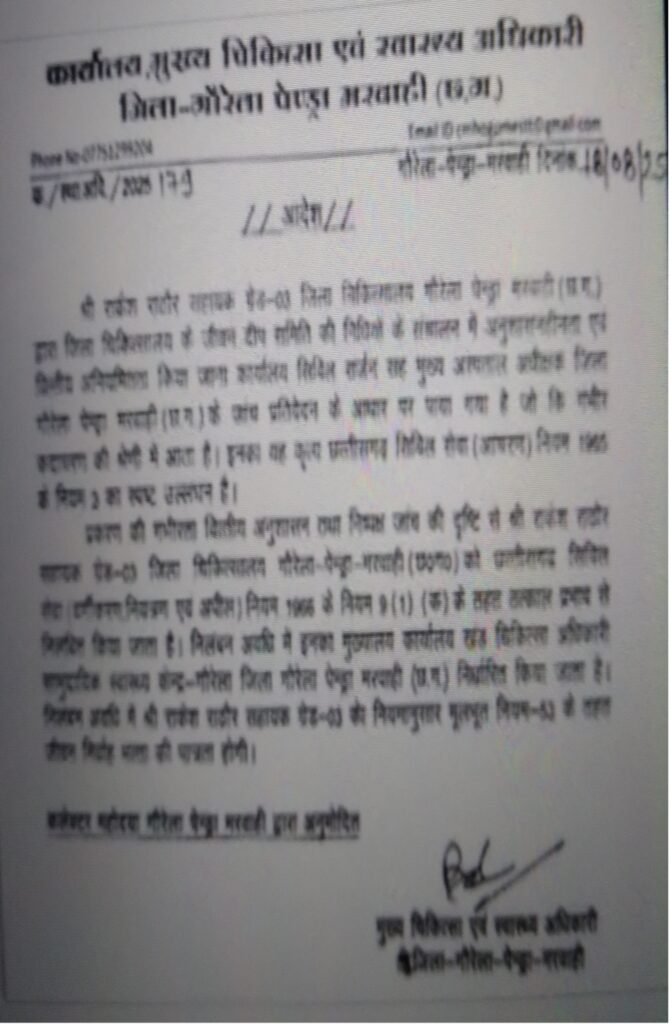 कार्यालय मुख्य चिकित्सा एवं स्वास्थ्य अधिकारी
जिला-गौरेला पेण्ड्रा मरवाही (छ.ग.)
Phone No-07751299204
क्र./स्था.अवि./2025 179
गौरेला-पेण्ड्रा-मरवाही दिनांक 18/08/25
//आदेश//
श्री राकेश राठौर सहायक ग्रेड-03 जिला चिकित्सालय गौरेला पेण्ड्रा मरवाही (छ.ग.)
द्वारा जिला चिकित्सालय के जीवन दीप समिति की निधियों के संचालन में अनुशासनहीनता एवं
वित्तीय अनियमितता किया जाना कार्यालय सिविल सर्जन सह मुख्य अस्पताल अधीक्षक जिला
गौरेला पेण्ड्रा मरवाही (छ.ग.) के जांच प्रतिवेदन के आधार पर पाया गया है जो कि गंभीर
कदाचरण की श्रेणी में आता है। इनका यह कृत्य छत्तीसगढ़ सिविल सेवा (आचरण) नियम 1965
के नियम 3 का स्पष्ट उल्लंघन है।
प्रकरण की गंभीरता वित्तीय अनुशासन तथा निष्पक्ष जांच की दृष्टि से श्री राकेश राठौर
सहायक ग्रेड-03 जिला चिकित्सालय गौरेला-पेण्ड्रा-मरवाही (छ0ग0) को छत्तीसगढ़ सिविल
सेवा (वर्गीकरण,नियंत्रण एवं अपील) नियम 1966 के नियम 9 (1) (क) के तहत तत्काल प्रभाव से
निलंबित किया जाता है। निलंबन अवधि में इनका मुख्यालय कार्यालय खंड चिकित्सा अधिकारी
सामुदायिक स्वास्थ्य केन्द्र-गौरेला जिला गौरेला पेण्ड्रा मरवाही (छ.ग.) निर्धारित किया जाता है।
निलंबन अवधि में श्री राकेश राठौर सहायक ग्रेड-03 को नियमानुसार मूलभूत नियम-53 के तहत
जीवन निर्वाह भत्ता की पात्रता होगी।
कलेक्टर महोदया गौरेला पेण्ड्रा मरवाही द्वारा अनुमोदित
मुख्य चिकित्सा एवं स्वास्थ्य अधिकारी
जिला-गौरेला-पेण्ड्रा-मरवाही